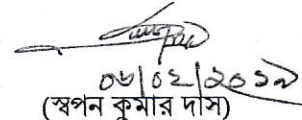 ০৬/০২/২০১৯
(স্বপন কুমার দাস)